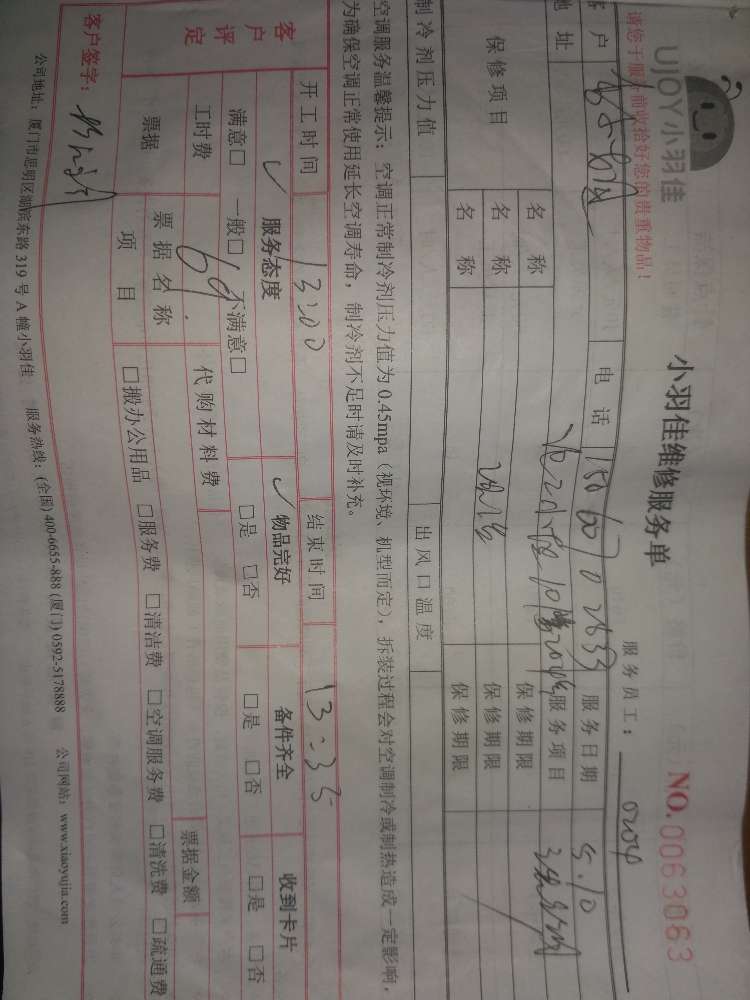 UJOY小羽佳
小羽佳维修服务单
NO.0063063
请您于服务前收拾好您的贵重物品！
服务员工：0204
客户 电话 服务日期 5.10
地址 服务项目
保修项目 名称 保修期限
名称 保修期限
名称 保修期限
制冷剂压力值 出风口温度
空调服务温馨提示：空调正常制冷剂压力值为0.45mpa（视环境、机型而定），拆装过程会对空调制冷或制热造成一定影响，
为确保空调正常使用延长空调寿命，制冷剂不足时请及时补充。
开工时间 13:00 结束时间 13:35
客户评定 ✓服务态度 ✓物品完好 备件齐全 收到卡片
满意□ 一般□ 不满意□ □是 □否 □是 □否 □是 □否
工时费 69. 代购材料费
票据 票据名称 票据金额
项目 □搬办公用品 □服务费 □清洁费 □空调服务费 □清洗费 □疏通费
客户签字：
公司地址：厦门市思明区湖滨东路319号A幢小羽佳 服务热线：(全国)400-6655-888 (厦门)0592-5178888 公司网站：www.xiaoyujia.com